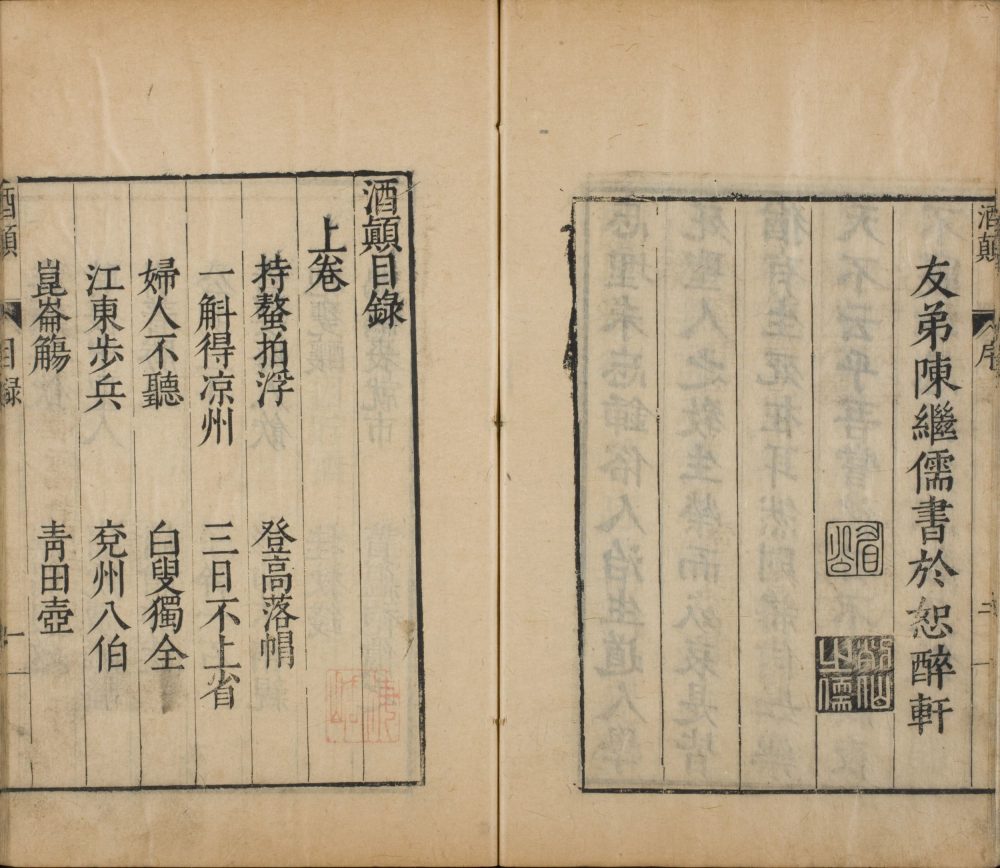 酒顛
序
二
友弟陳繼儒書於恕醉軒
眉公
之儒
酒顛目錄
上卷
持螯拍浮　登高落帽
一斛得凉州　三日不上省
婦人不聽　白叟獨全
江東步兵　兗州八伯
崑崙觴　青田壺
酒顛
目録
一